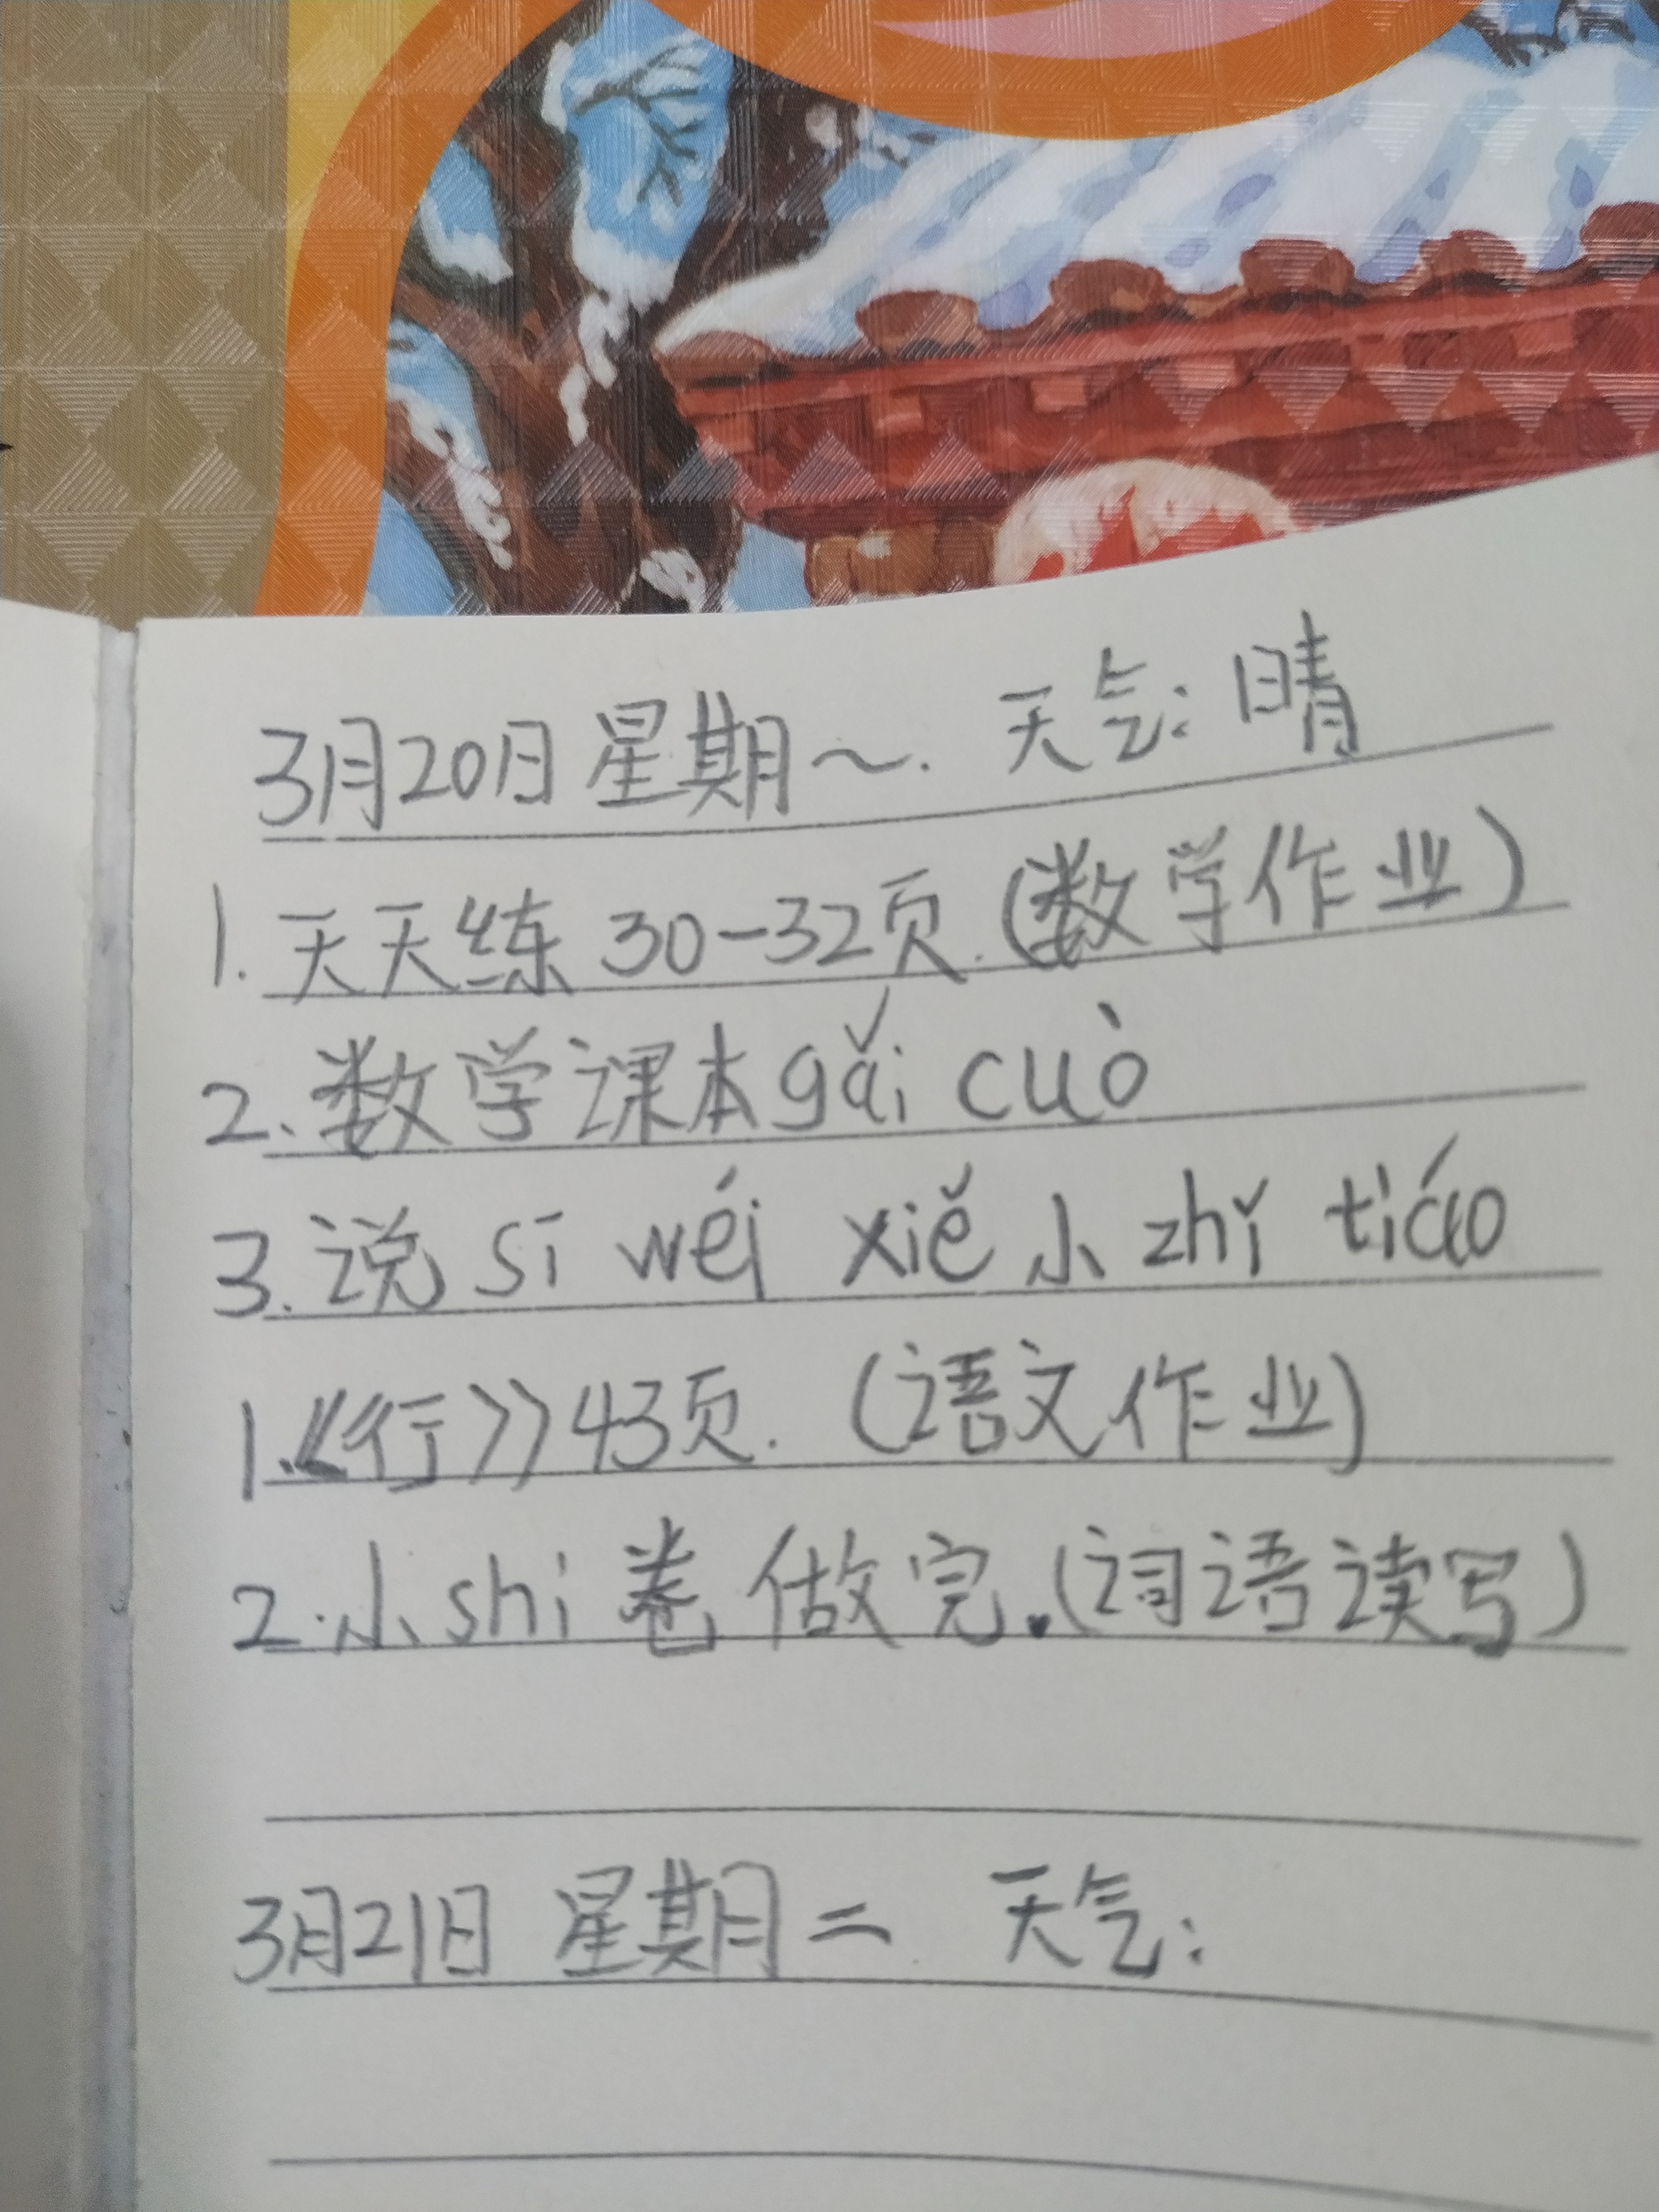 3月20日 星期一. 天气: 晴
1. 天天练 30-32页. (数学作业)
2. 数学课本gǎi cuò
3. 说 sī wéi xiě 小 zhǐ tiáo
1.《行》43页. (语文作业)
2. 小shi 卷 做完. (词语读写)
3月21日 星期二 天气: